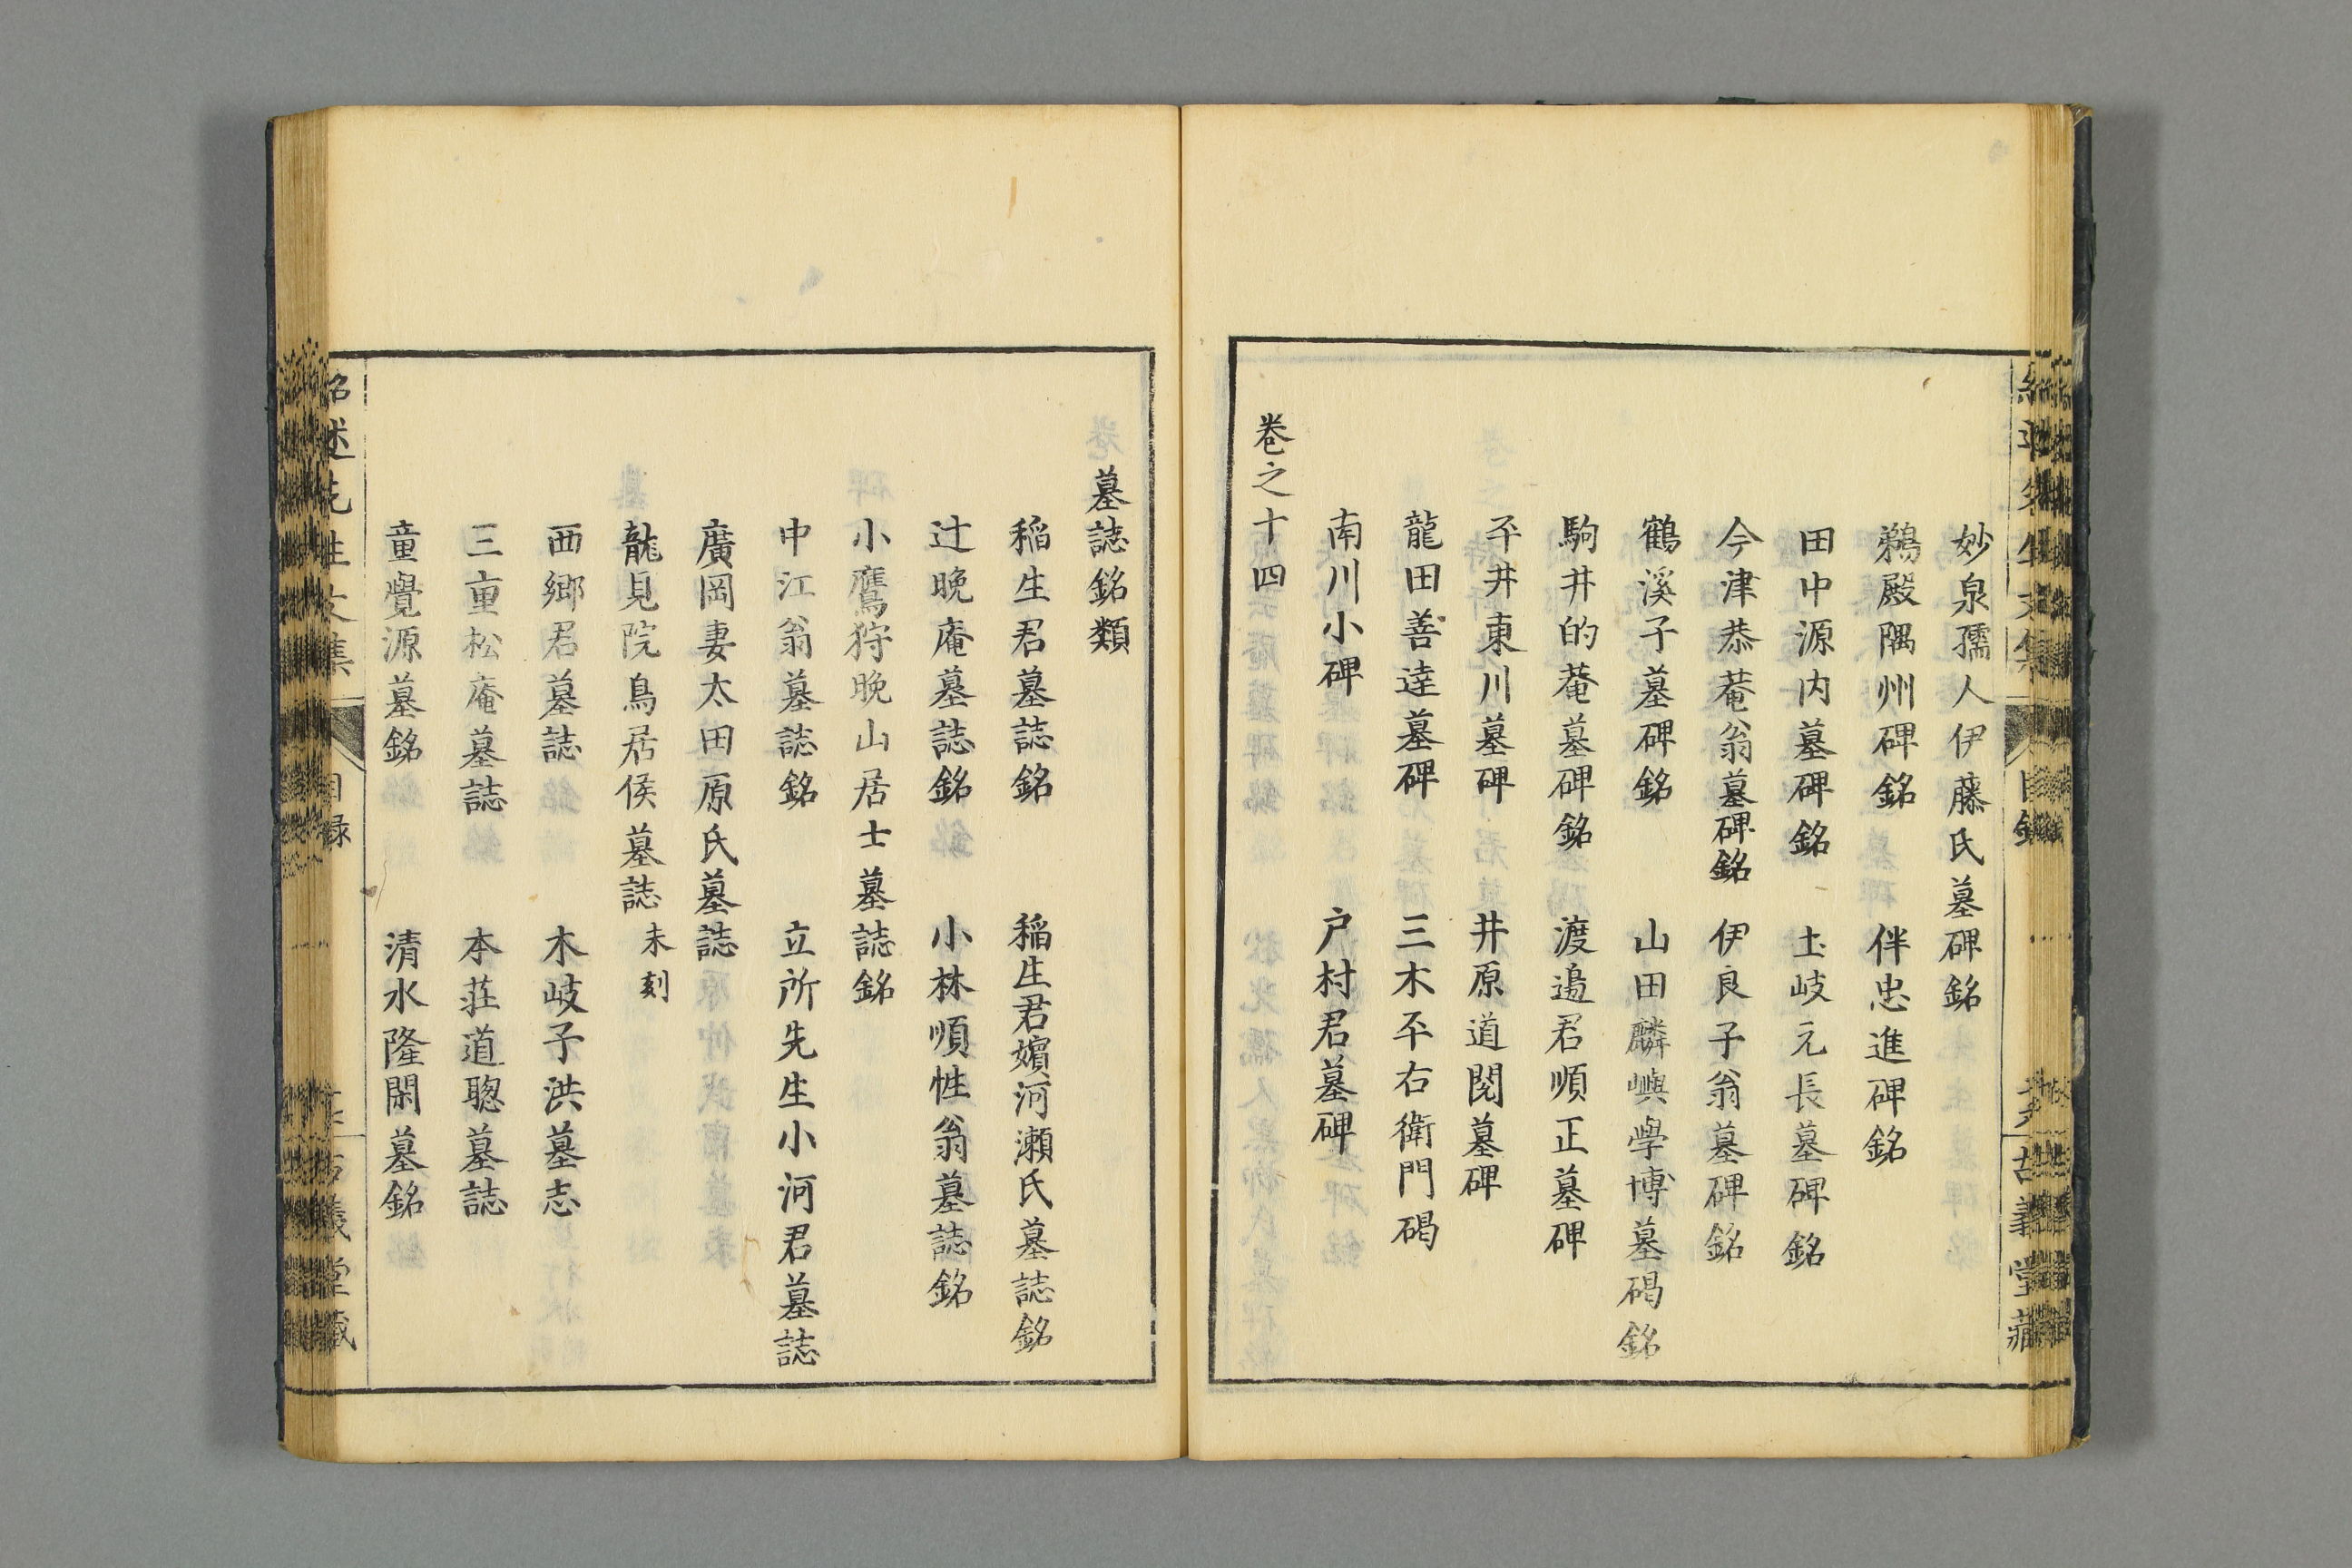 妙泉孺人伊藤氏墓碑銘
鵜殿隅州碑銘　伴忠進碑銘
田中源内墓碑銘　土岐元長墓碑銘
今津恭菴翁墓碑銘　伊良子翁墓碑銘
鶴溪子墓碑銘　山田麟嶼學博墓碣銘
駒井的菴墓碑銘　渡邉君順正墓碑
平井東川墓碑　井原道閲墓碑
龍田善達墓碑　三木平右衛門碣
南川小碑　戸村君墓碑
卷之十四
墓誌銘類
稲生君墓誌銘　稲生君嬪河瀬氏墓誌銘
辻晩庵墓誌銘　小林順性翁墓誌銘
小鷹狩晩山居士墓誌銘
中江翁墓誌銘　立所先生小河君墓誌
廣岡妻太田原氏墓誌
龍見院鳥居侯墓誌　未刻
西郷君墓誌　木岐子洪墓志
三重松庵墓誌　本莊道聦墓誌
童覺源墓銘　清水隆閑墓銘
紹述先生文集　目録　古義堂藏